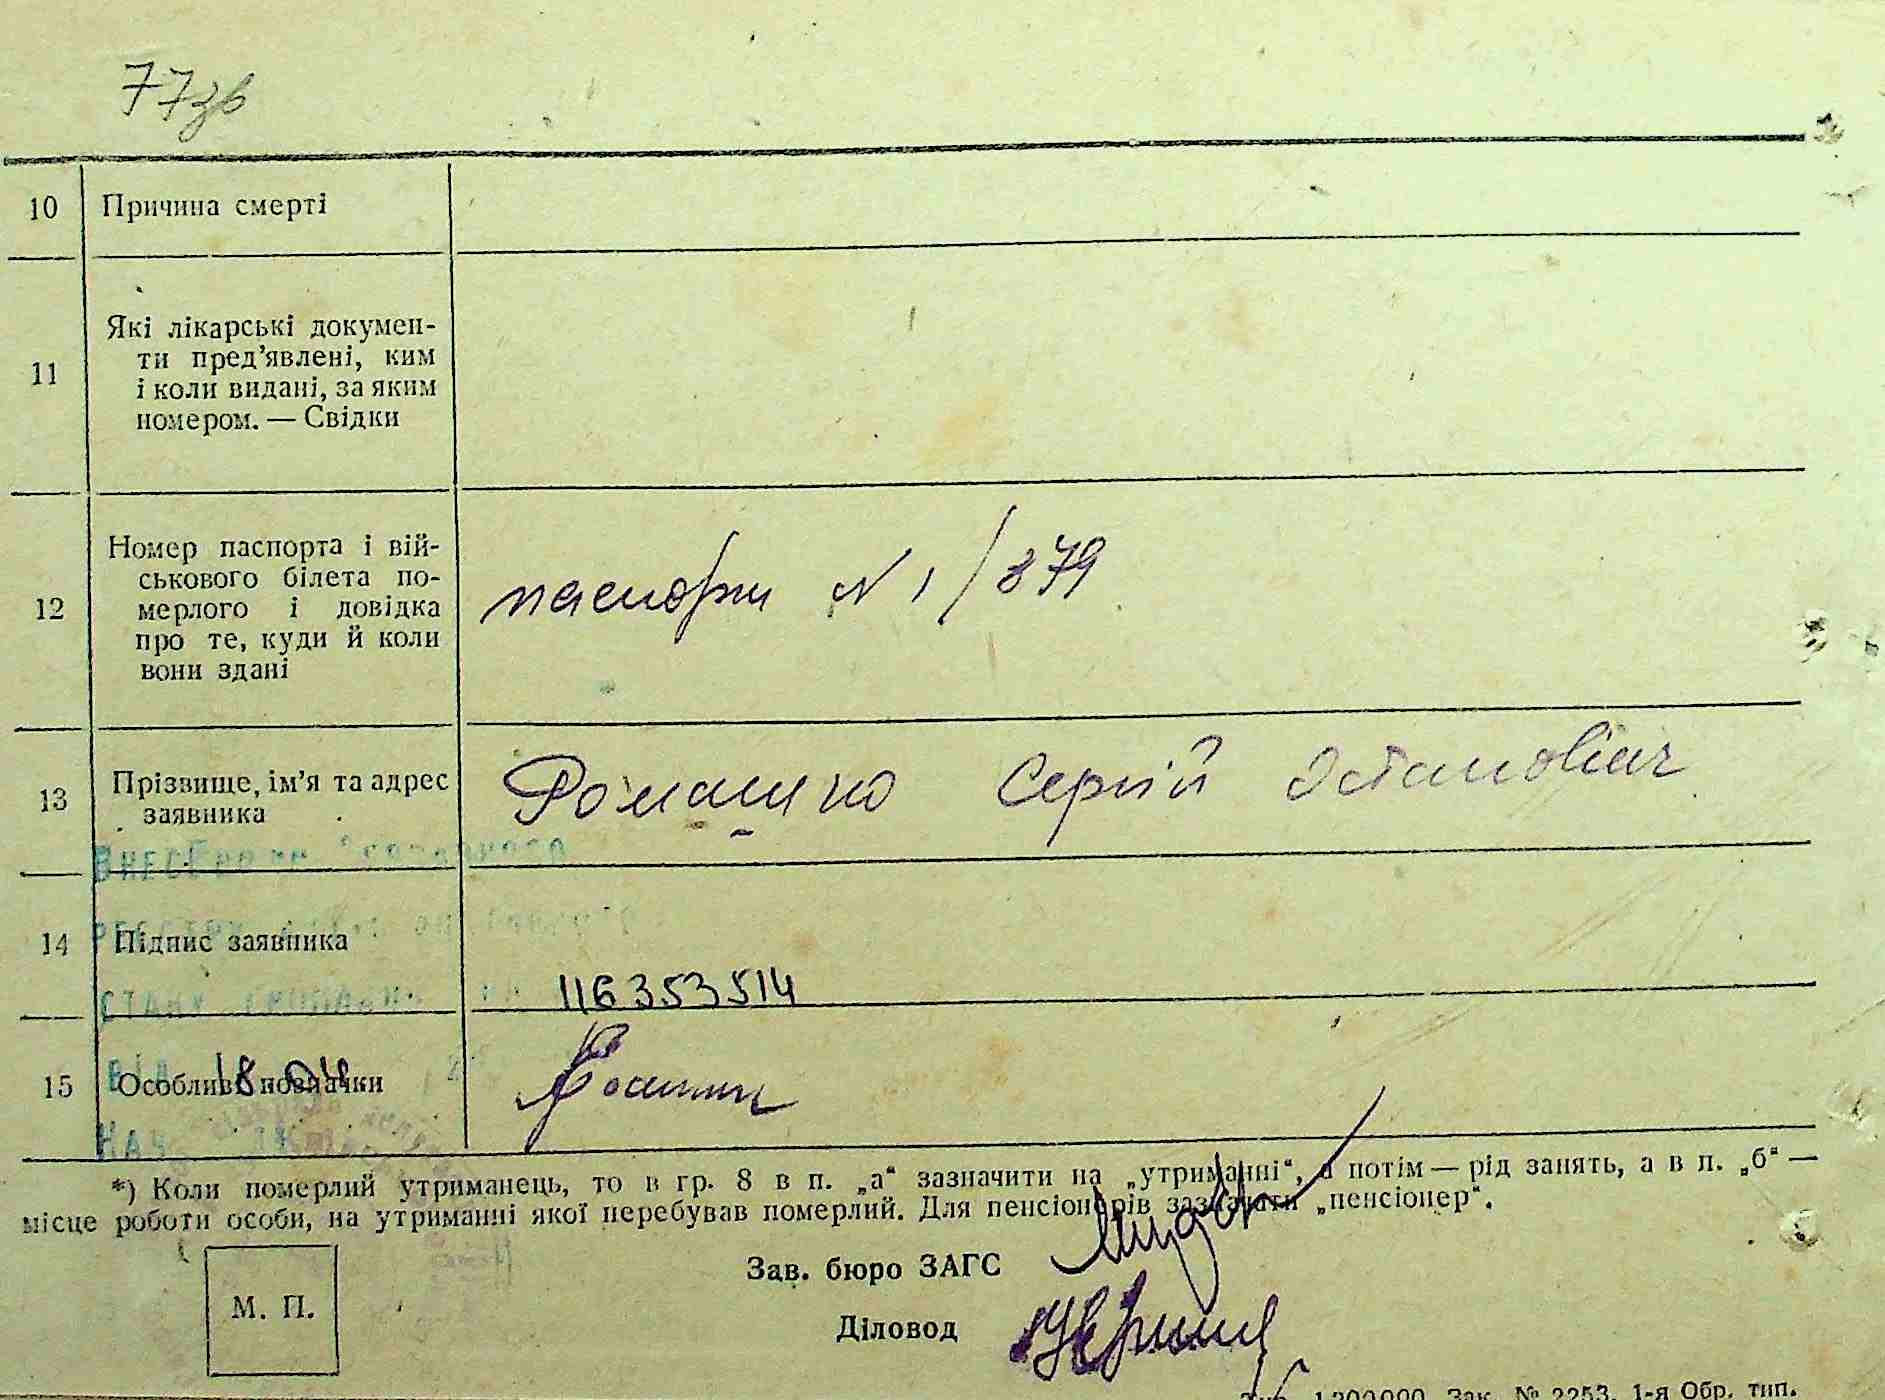 77зв
10 Причина смерті
11 Які лікарські докумен-
ти пред’явлені, ким
і коли видані, за яким
номером. — Свідки
12 Номер паспорта і вій-
ськового білета по-
мерлого і довідка
про те, куди й коли
вони здані
паспорт N 1/379
13 Прізвище, ім’я та адрес
заявника
Ромашко Сергій Остапович
14 Підпис заявника
116353514
СТАНУ ГРОМАДЯН
15 Особливі позначки
ВІД 18 04
НАЧ
*) Коли померлий утриманець, то в гр. 8 в п. „а“ зазначити на „утриманні“, а потім — рід занять, а в п. „б“ —
місце роботи особи, на утриманні якої перебував померлий. Для пенсіонерів зазначати „пенсіонер“.
Зав. бюро ЗАГС
М. П.
Діловод
1.200.000. Зак. № 2253. 1-я Обр. тип.